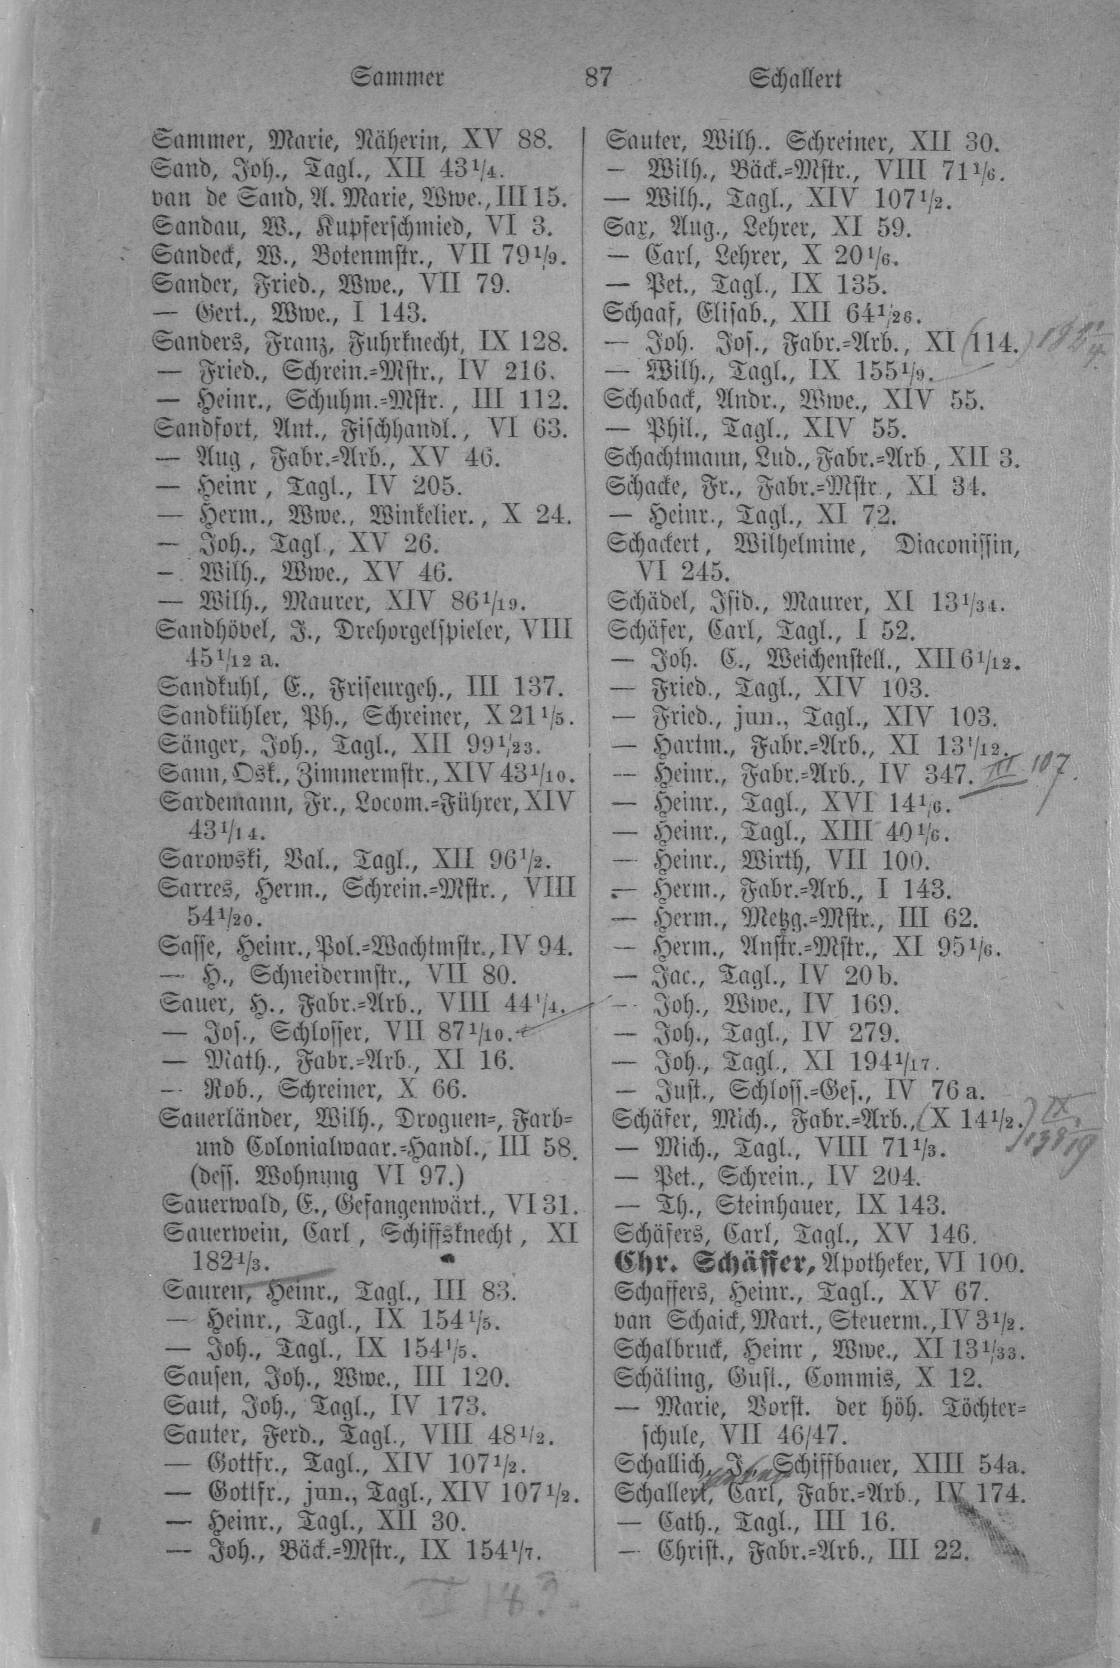 Sammer 87 Schallert
Sammer, Marie, Näherin, XV 88.
Sand, Joh., Tagl., XII 43 1/4.
van de Sand, A. Marie, Wwe., III 15.
Sandau, W., Kupferschmied, VI 3.
Sandeck, W., Botenmstr., VII 79 1/9.
Sander, Fried., Wwe., VII 79.
— Gert., Wwe., I 143.
Sanders, Franz, Fuhrknecht, IX 128.
— Fried., Schrein.=Mstr., IV 216.
— Heinr., Schuhm.=Mstr., III 112.
Sandfort, Ant., Fischhandl., VI 63.
— Aug, Fabr.=Arb., XV 46.
— Heinr, Tagl., IV 205.
— Herm., Wwe., Winkelier., X 24.
— Joh., Tagl, XV 26.
— Wilh., Wwe., XV 46.
— Wilh., Maurer, XIV 86 1/19.
Sandhövel, J., Drehorgelspieler, VIII
45 1/12 a.
Sandkuhl, E., Friseurgeh., III 137.
Sandkühler, Ph., Schreiner, X 21 1/5.
Sänger, Joh., Tagl., XII 99 1/23.
Sann, Osk., Zimmermstr., XIV 43 1/10.
Sardemann, Fr., Locom.=Führer, XIV
43 1/14.
Sarowski, Val., Tagl., XII 96 1/2.
Sarres, Herm., Schrein.=Mstr., VIII
54 1/20.
Sasse, Heinr., Pol.=Wachtmstr., IV 94.
— H., Schneidermstr., VII 80.
Sauer, H., Fabr.=Arb., VIII 44 1/4.
— Jos., Schlosser, VII 87 1/10.
— Math., Fabr.=Arb., XI 16.
— Rob., Schreiner, X 66.
Sauerländer, Wilh., Droguen=, Farb=
und Colonialwaar.=Handl., III 58.
(dess. Wohnung VI 97.)
Sauerwald, E., Gefangenwärt., VI 31.
Sauerwein, Carl, Schiffsknecht, XI
182 1/3.
Sauren, Heinr., Tagl., III 83.
— Heinr., Tagl., IX 154 1/5.
— Joh., Tagl., IX 154 1/5.
Sausen, Joh., Wwe., III 120.
Saut, Joh., Tagl., IV 173.
Sauter, Ferd., Tagl., VIII 48 1/2.
— Gottfr., Tagl., XIV 107 1/2.
— Gottfr., jun., Tagl., XIV 107 1/2.
— Heinr., Tagl., XII 30.
— Joh., Bäck.=Mstr., IX 154 1/7.
Sauter, Wilh.. Schreiner, XII 30.
— Wilh., Bäck.=Mstr., VIII 71 1/6.
— Wilh., Tagl., XIV 107 1/2.
Sax, Aug., Lehrer, XI 59.
— Carl, Lehrer, X 20 1/6.
— Pet., Tagl., IX 135.
Schaaf, Elisab., XII 64 1/26.
— Joh. Jos., Fabr.=Arb., XI (114.)
— Wilh., Tagl., IX 155 1/9.
Schaback, Andr., Wwe., XIV 55.
— Phil., Tagl., XIV 55.
Schachtmann, Lud., Fabr.=Arb, XII 3.
Schacke, Fr., Fabr.=Mstr, XI 34.
— Heinr., Tagl., XI 72.
Schackert, Wilhelmine, Diaconissin,
VI 245.
Schädel, Isid., Maurer, XI 13 1/34.
Schäfer, Carl, Tagl., I 52.
— Joh. C., Weichenstell., XII 6 1/12.
— Fried., Tagl., XIV 103.
— Fried., jun., Tagl., XIV 103.
— Hartm., Fabr.=Arb., XI 13 1/12.
— Heinr., Fabr.=Arb., IV 347. III 107.
— Heinr., Tagl., XVI 14 1/6.
— Heinr., Tagl., XIII 40 1/6.
— Heinr., Wirth, VII 100.
— Herm., Fabr.=Arb., I 143.
— Herm., Metzg.=Mstr., III 62.
— Herm., Anstr.=Mstr., XI 95 1/6.
— Jac., Tagl., IV 20 b.
— Joh., Wwe., IV 169.
— Joh., Tagl., IV 279.
— Joh., Tagl., XI 194 1/17.
— Just., Schloss.=Ges., IV 76 a.
Schäfer, Mich., Fabr.=Arb., (X 14 1/2.) IX
— Mich., Tagl., VIII 71 1/3.
— Pet., Schrein., IV 204.
— Th., Steinhauer, IX 143.
Schäfers, Carl, Tagl., XV 146.
Chr. Schäffer, Apotheker, VI 100.
Schaffers, Heinr., Tagl., XV 67.
van Schaick, Mart., Steuerm., IV 3 1/2.
Schalbruck, Heinr, Wwe., XI 13 1/33.
Schäling, Gust., Commis, X 12.
— Marie, Vorst. der höh. Töchter=
schule, VII 46/47.
Schallich, J., Schiffbauer, XIII 54a.
Schallert, Carl, Fabr.=Arb., IV 174.
— Cath., Tagl., III 16.
— Christ., Fabr.=Arb., III 22.